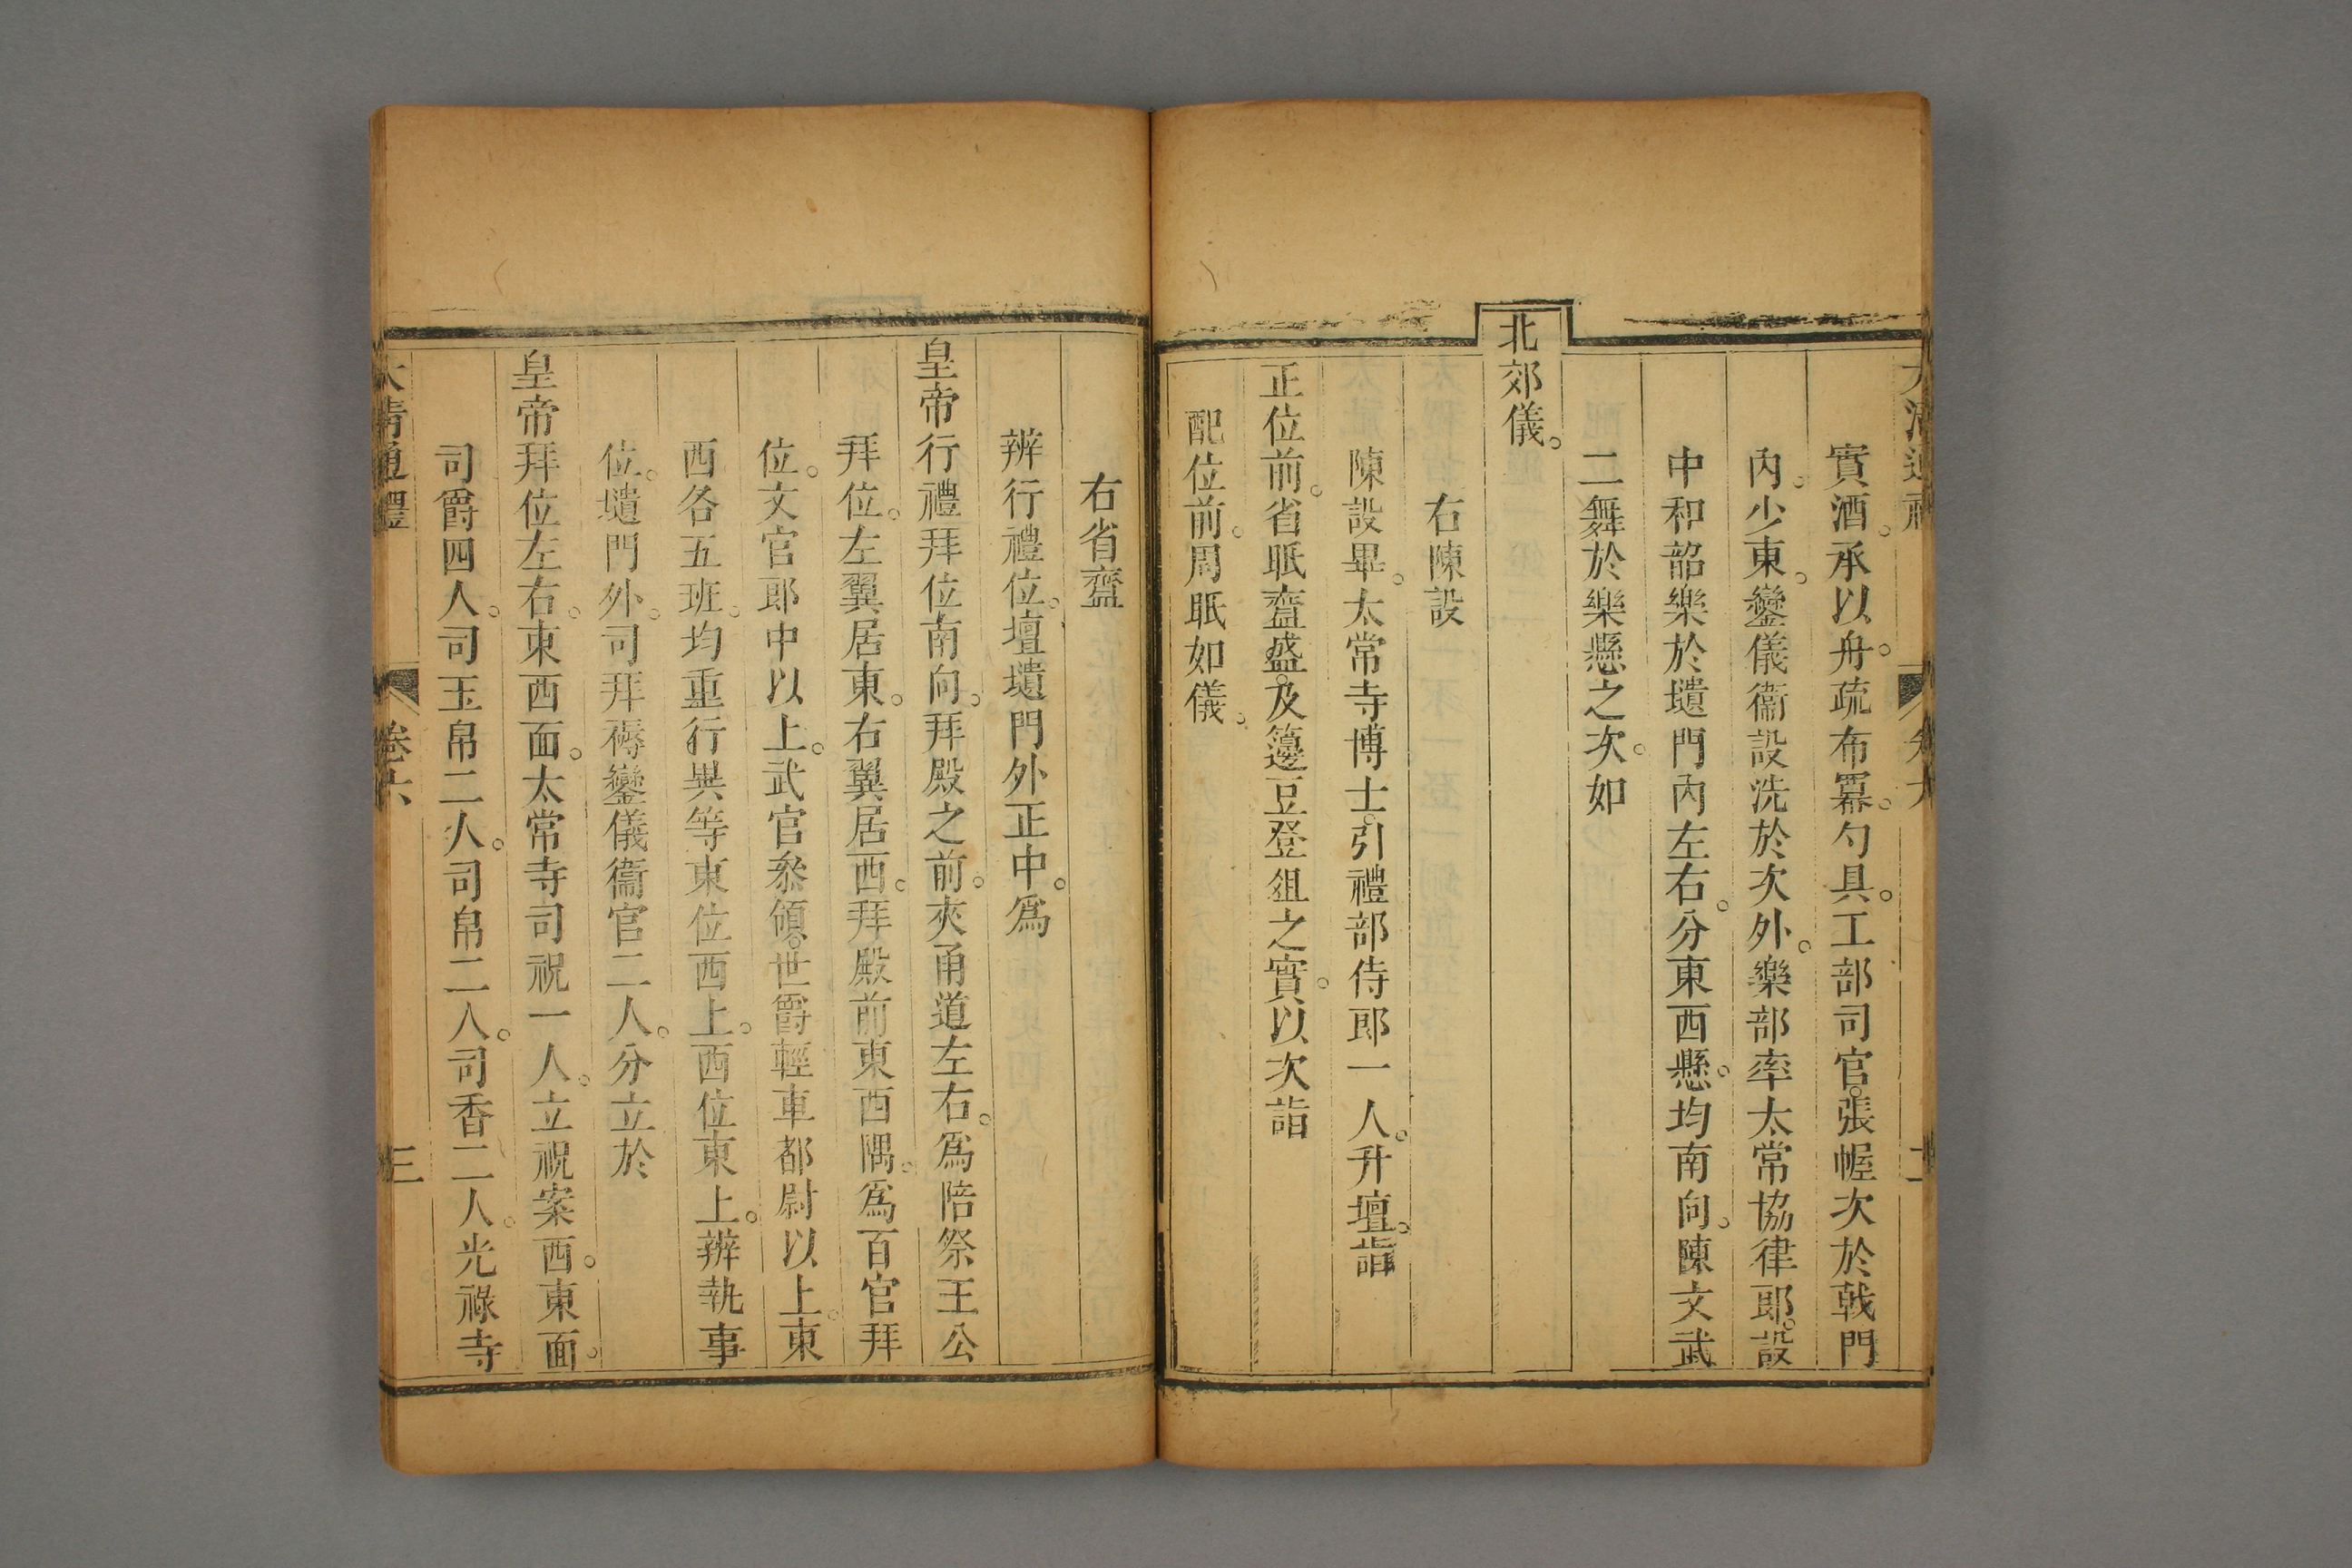 大清通禮 卷六 二
實酒。承以舟。疏布冪。勺具。工部司官。張幄次於戟門
內。少東。鑾儀衞設洗於次外。樂部率太常協律郎。設
中和韶樂於壝門內左右。分東西懸。均南向。陳文武
二舞於樂懸之次。如
北郊儀。
右陳設
陳設畢。太常寺博士。引禮部侍郎一人。升壇。詣
正位前。省眡齍盛。及籩豆登俎之實。以次詣
配位前。周眡如儀。
右省齍
辨行禮位。壇壝門外正中。爲
皇帝行禮拜位南向。拜殿之前。夾甬道左右。爲陪祭王公
拜位。左翼居東。右翼居西。拜殿前東西隅。爲百官拜
位。文官郎中以上。武官叅領。世爵輕車都尉以上。東
西各五班。均重行異等東位西上。西位東上。辨執事
位。壝門外。司拜褥鑾儀衞官二人。分立於
皇帝拜位左右。東西面。太常寺司祝一人。立祝案西。東面。
司爵四人。司玉帛二人。司帛二人。司香二人。光祿寺
大清通禮 卷六 三